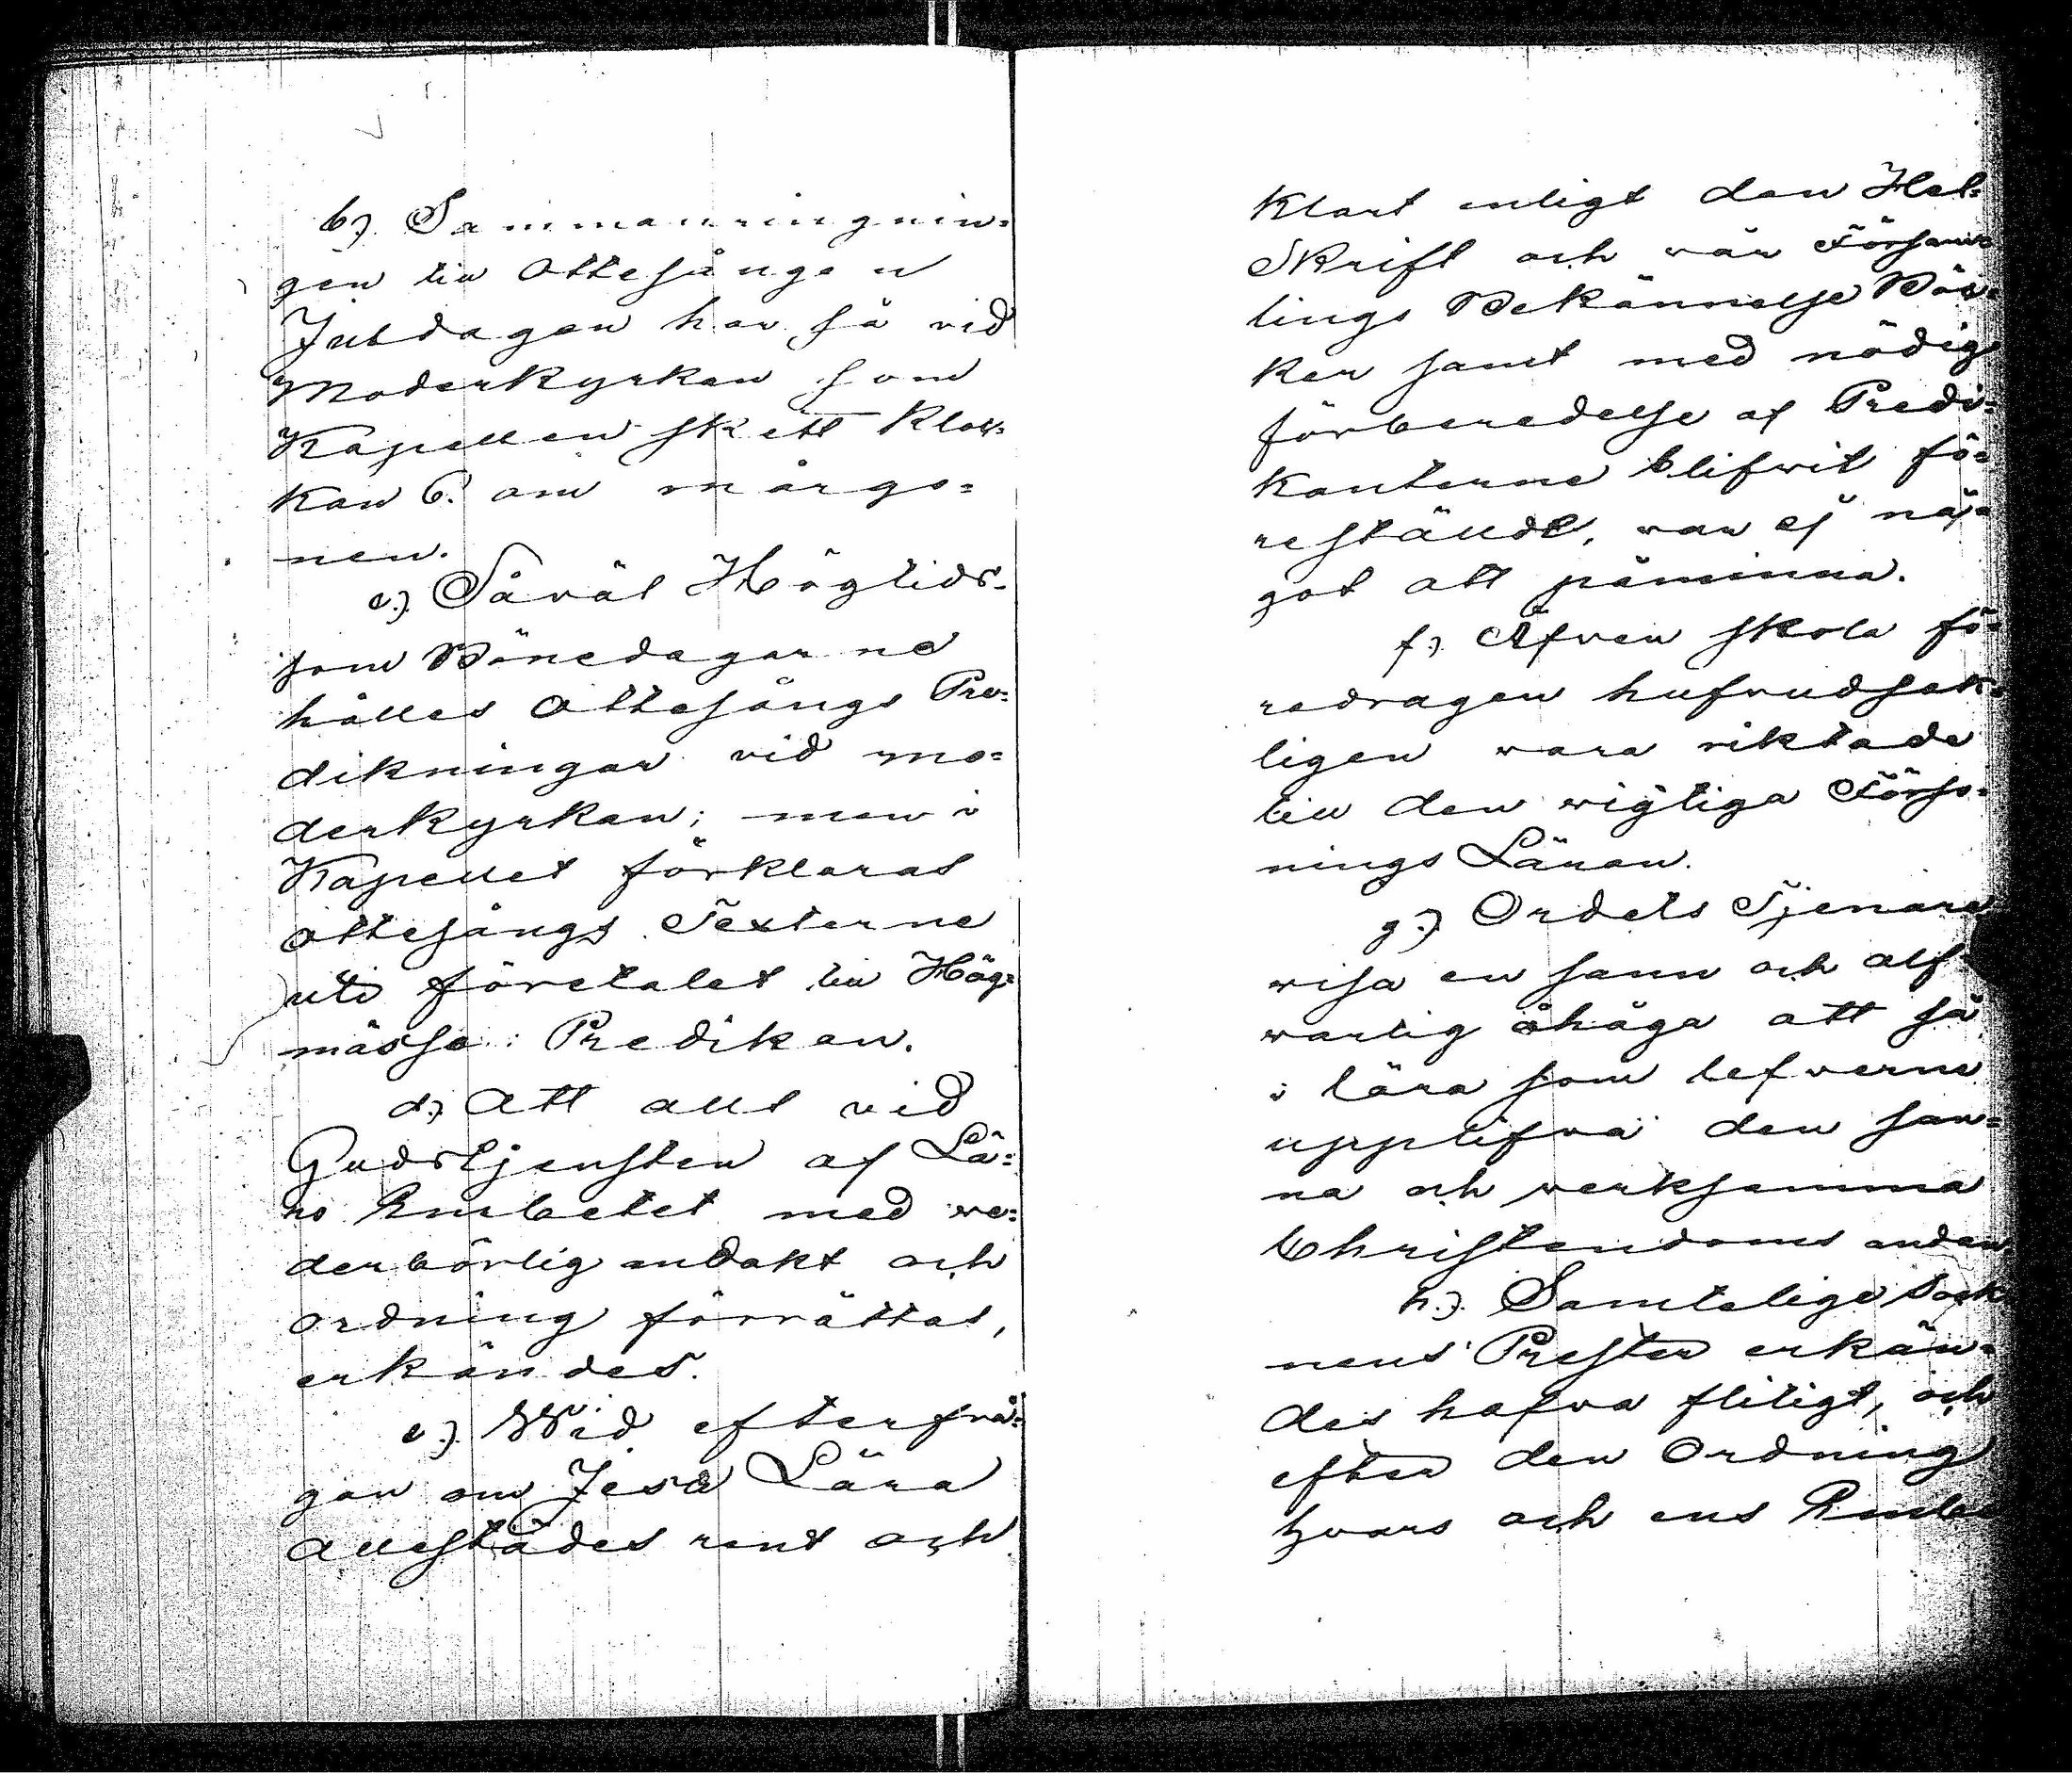 b.) Sammanringnin=
gen till Ottesången
Juldagen har så vid
Moderkyrkan som
Kapellen skett Kloc=
kan 6. om mårgo=
nen.
c.) Såväl Högtids-
som Bönedagarne
hålles Ottesångs Pre=
dikningar vid mo=
derkyrkan; men i
Kapellet förklaras
Ottesångs Texterne
uti företalet till Hög=
mässo: Predikan.
d.) Att allt vid
Gudstjensten af Lä=
ro Embetet med we=
derbörlig andakt och
ordning förrättas,
erkändes.
e.) Wid efterfrå=
gan om Jesu Lära
allestädes rent och
Klart enligt den Hel.
Skrift och vår Försam=
lings Bekännelse Böc=
ker samt med nödig
förberedelse af Predi=
kanterne blifvit fö=
reställde, var ej nå=
got att påminna.
f.) Äfven skola fö=
redragen hufvudsak=
ligen vara riktade
till den wigtiga Förso=
nings Läran.
g.) Ordets Tjenare
visa en sann och alf=
varlig åhåga att så
i lära som lefverne
upplifva den san=
na och verksamma
Christendoms andan.
h.) Samtelige Sock
nens Prester erkän=
des hafva flitigt, och
efter den Ordning
hvars och ens Embe